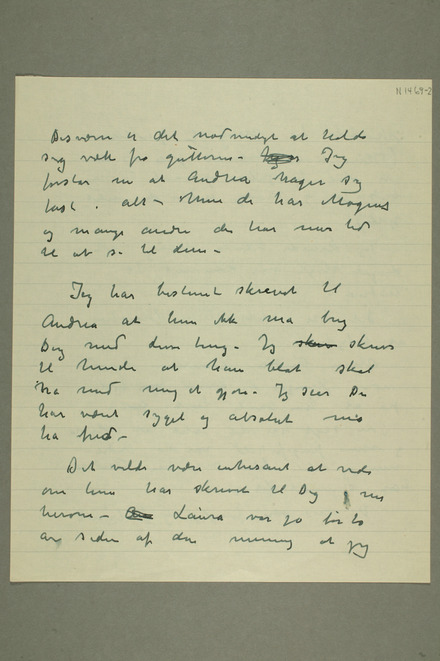 N 1469-2
Desværre er det nødvendigt at holde
sig væk fra gutterne – Jeg
forstår nu at Andrea tager sig
fast i alt – Men de har Mogens
og mange andre der har mer tid
til at se til dem –
Jeg har bestemt skrevet til
Andrea at hun ikk må
Dig med disse ting – Jeg skrev
til hende at hun blot skal
ha med mig at gjøre – Jeg sier Du
har vært syg og absolut må
ha fred –
Det vilde være interesant at vide
om hun har skrevet til Dig
herom – Laura var jo for to
år siden af den mening at jeg